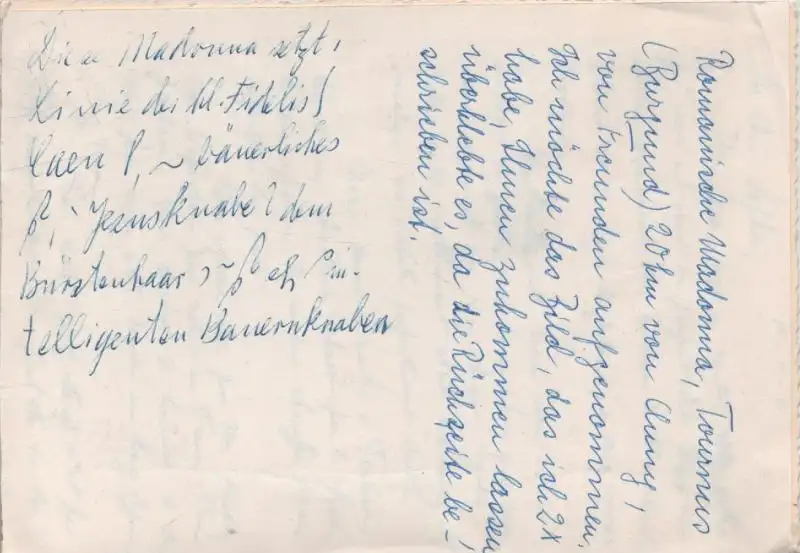 Diese Madonna setzt,
Linie der hl. Fidelis
Caen bäuerliches
Jesusknabe dem
Bürstenhaar in-
telligenten Bauernknaben
Romanische Madonna, Tournus
(Burgund) 20 km von Cluny,
von Freunden aufgenommen.
Ich möchte das Bild, das ich 2x
habe, Ihnen zukommen lassen
überklebte es, da die Rückseite be-
schrieben ist.